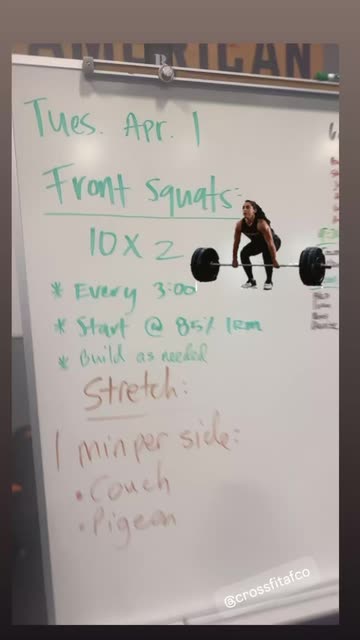 AMERICAN
Tues. Apr. 1
Front Squats:
10 x 2
* Every 3:00
* Start @ 85% 1RM
* Build as needed
Stretch:
1 min per side:
• Couch
• Pigeon
@crossfitafco